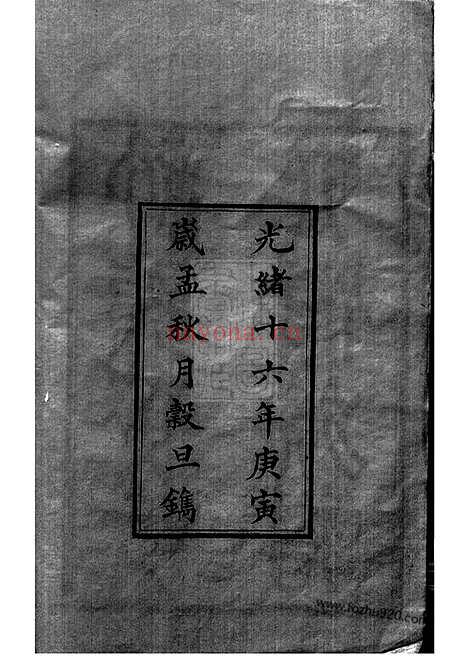 光緒十六年庚寅
歲孟秋月穀旦鐫
nayona.cn
www.fozhu920.com